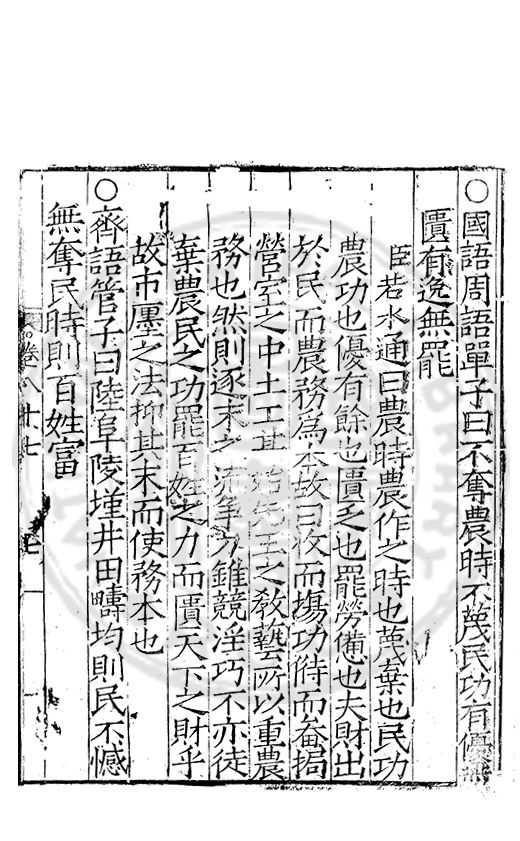 ○國語周語單子曰不奪農時不蔑民功有優無
匱有逸無罷
臣若水通曰農時農作之時也蔑棄也民功
農功也優有餘也匱乏也罷勞憊也夫財出
於民而農務爲本故曰收而場功偫而畚挶
營室之中土工其始先王之敎藝所以重農
務也然則逐末之流爭刀錐競淫巧不亦徒
棄農民之功罷百姓之力而匱天下之財乎
故市廛之法抑其末而使務本也
○齊語管子曰陸阜陵墐井田疇均則民不憾
無奪民時則百姓富
卷八十七
七